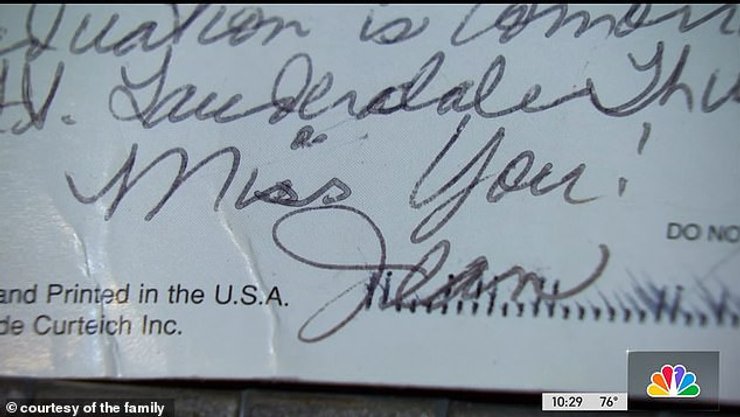 duation is tomor
t. Lauderdale Thu
Miss You!
DO NO
Jean
and Printed in the U.S.A.
de Curteich Inc.
10:29 76°
© courtesy of the family